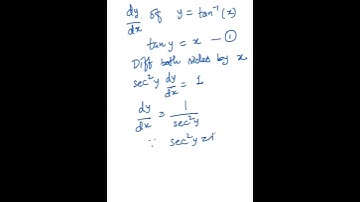 dy/dx of y = tan⁻¹(x)
tan y = x — ①
Diff both sides by x
sec²y dy/dx = 1
dy/dx = 1/sec²y
∵ sec²y =